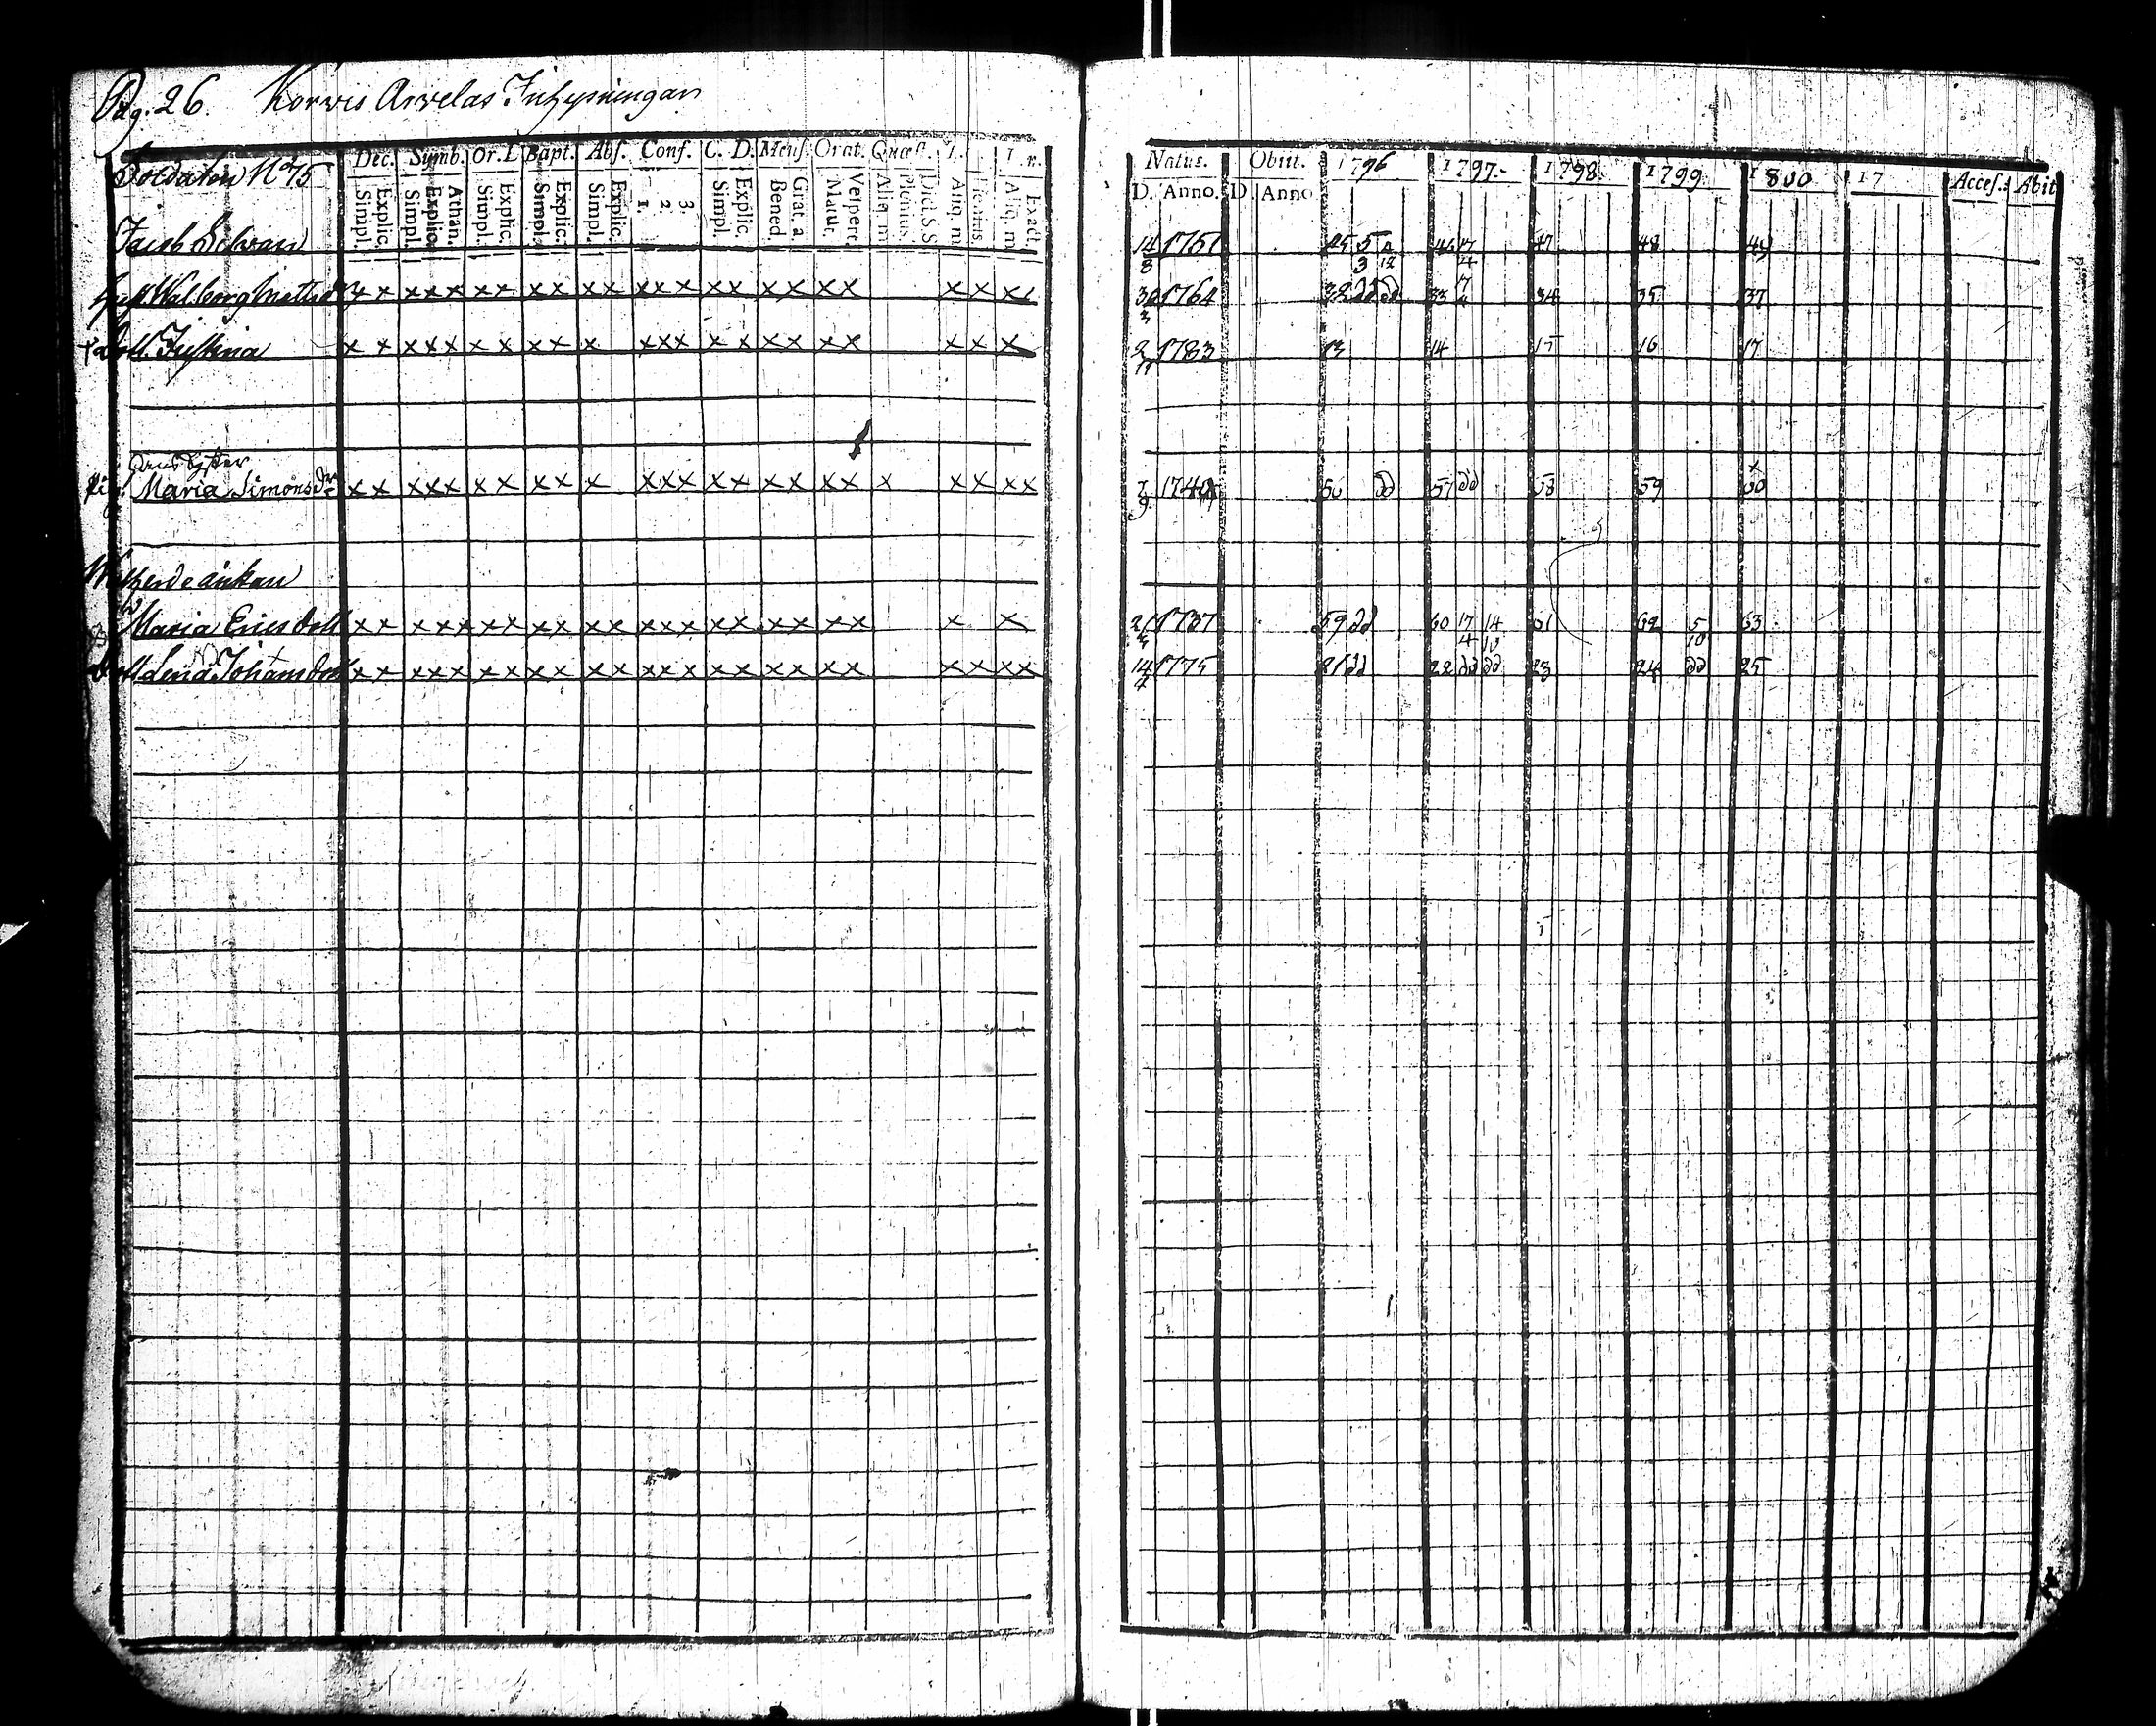 Pag. 26. Korvis Arvelas Inhysningar
Dec. Symb. Or. D Bapt. Abs. Conf. C. D. Mens. Orat. Quæst.
Soldaten No 75
Simpl. Explic. Simpl. Explic. Athan. Simpl. Explic. Simpl. Explic. Simpl. Explic. 1. 2. 3. Simpl. Explic. Bened. Grat. a. Matut. Vespert. Aliq. m. Plenius. Dict. S.S. Aliq. m. Aliq. m. Exact.
Natus. Obiit. 1796 1797 1798 1799 1800 17 Acces. Abit
D. Anno. D. Anno
Jacob 14/8 1751 45 5/3 46 17/4 47 48 49
Walborg x x x x x x x x x x x x x x x x x x x x x x x x 1764 32 dd dd 33 17/4 34 35 37
Dott. Justina x x x x x x x x x x x x x x x x x x x x x x 2/11 1783 13 14 15 16 17
Hans Syster
Pig. Maria Simons dr x x x x x x x x x x x x x x x x x x x x x x 7/9 56 dd 57 dd 58 59 60
änkan
Maria Erics dott x x x x x x x x x x x x x x x x x x x x x x 1737 59 dd 60 17/4 14/10 61 62 5/10 63
Dott Lena Johans dott x x x x x x x x x x x x x x x x x x x x x x x x 14/4 1775 21 dd 22 dd dd 23 24 dd 25